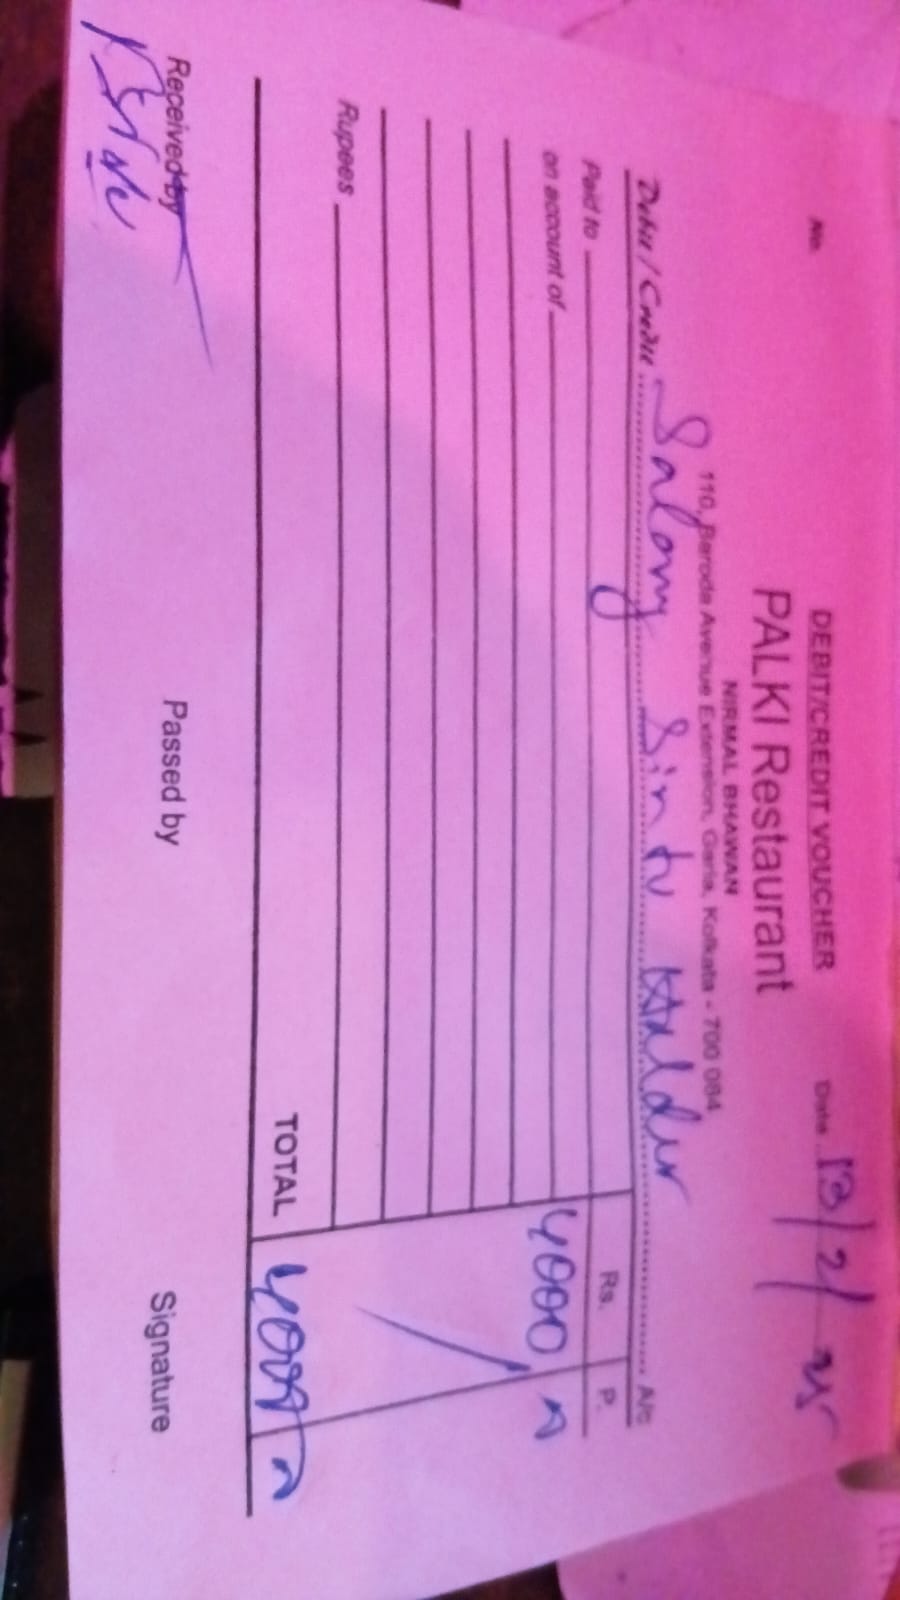 DEBIT/CREDIT VOUCHER
No. Date 13/2/25
PALKI Restaurant
NIRMAL BHAWAN
110, Baroda Avenue Extension, Garia, Kolkata - 700 084
Debit / Credit Salary Sintu Halder A/c
Paid to Rs. P.
on account of 4000
Rupees
TOTAL 4000
Received by Passed by Signature